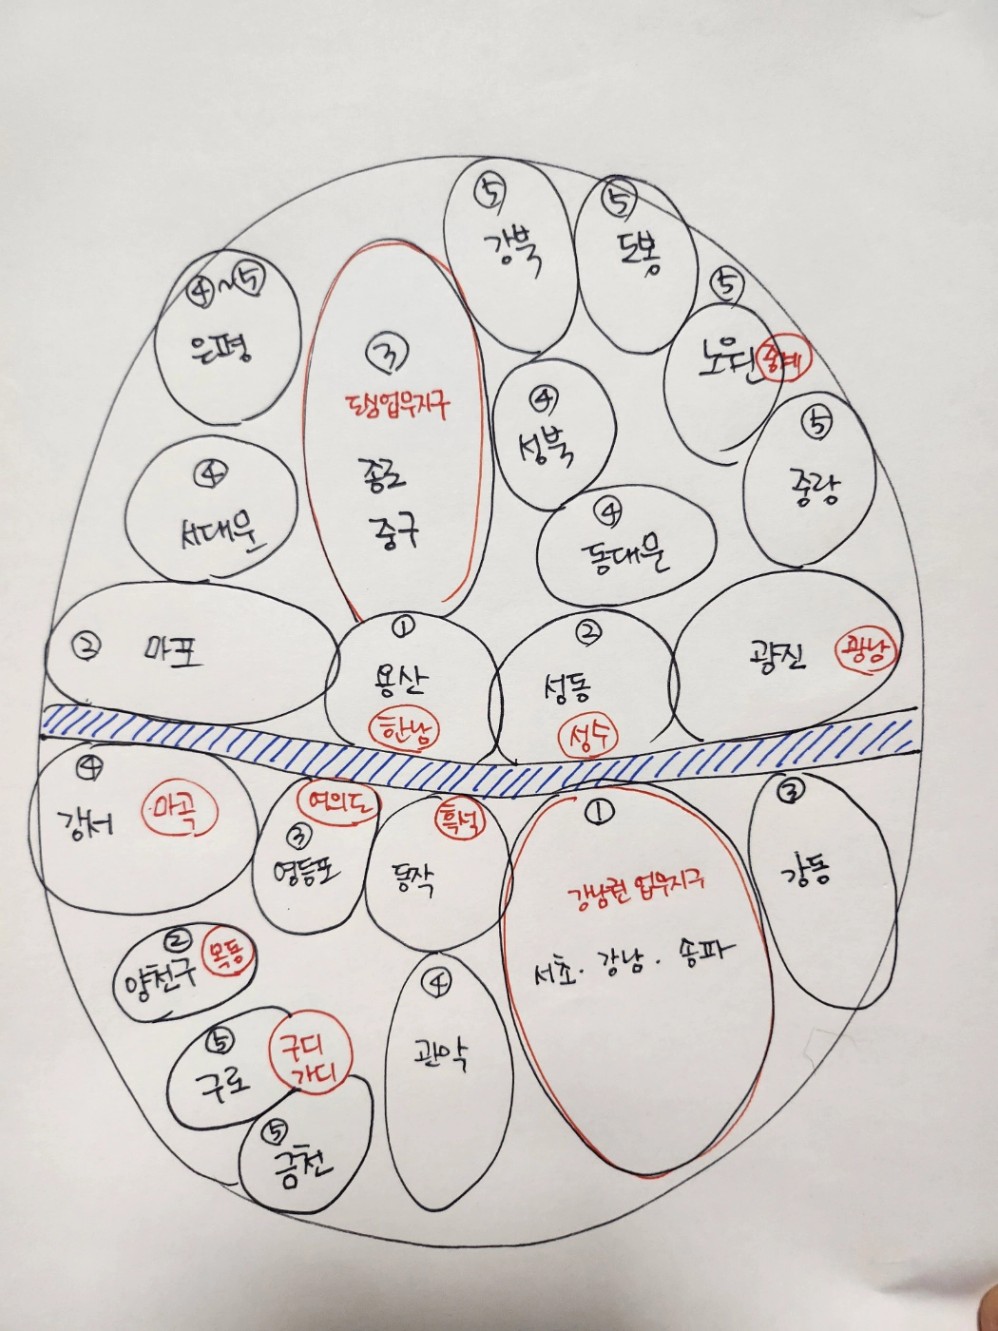 ⑤
강북
⑤
도봉
④~⑤
은평
⑤
노원
중계
③
도심업무지구
종로
중구
④
성북
⑤
중랑
④
서대문
④
동대문
②
마포
①
용산
한남
②
성동
성수
광진
광남
④
강서
마곡
여의도
③
영등포
흑석
동작
①
강남권 업무지구
서초. 강남. 송파
③
강동
②
양천구
목동
④
관악
⑤
구로
구디
가디
⑤
금천